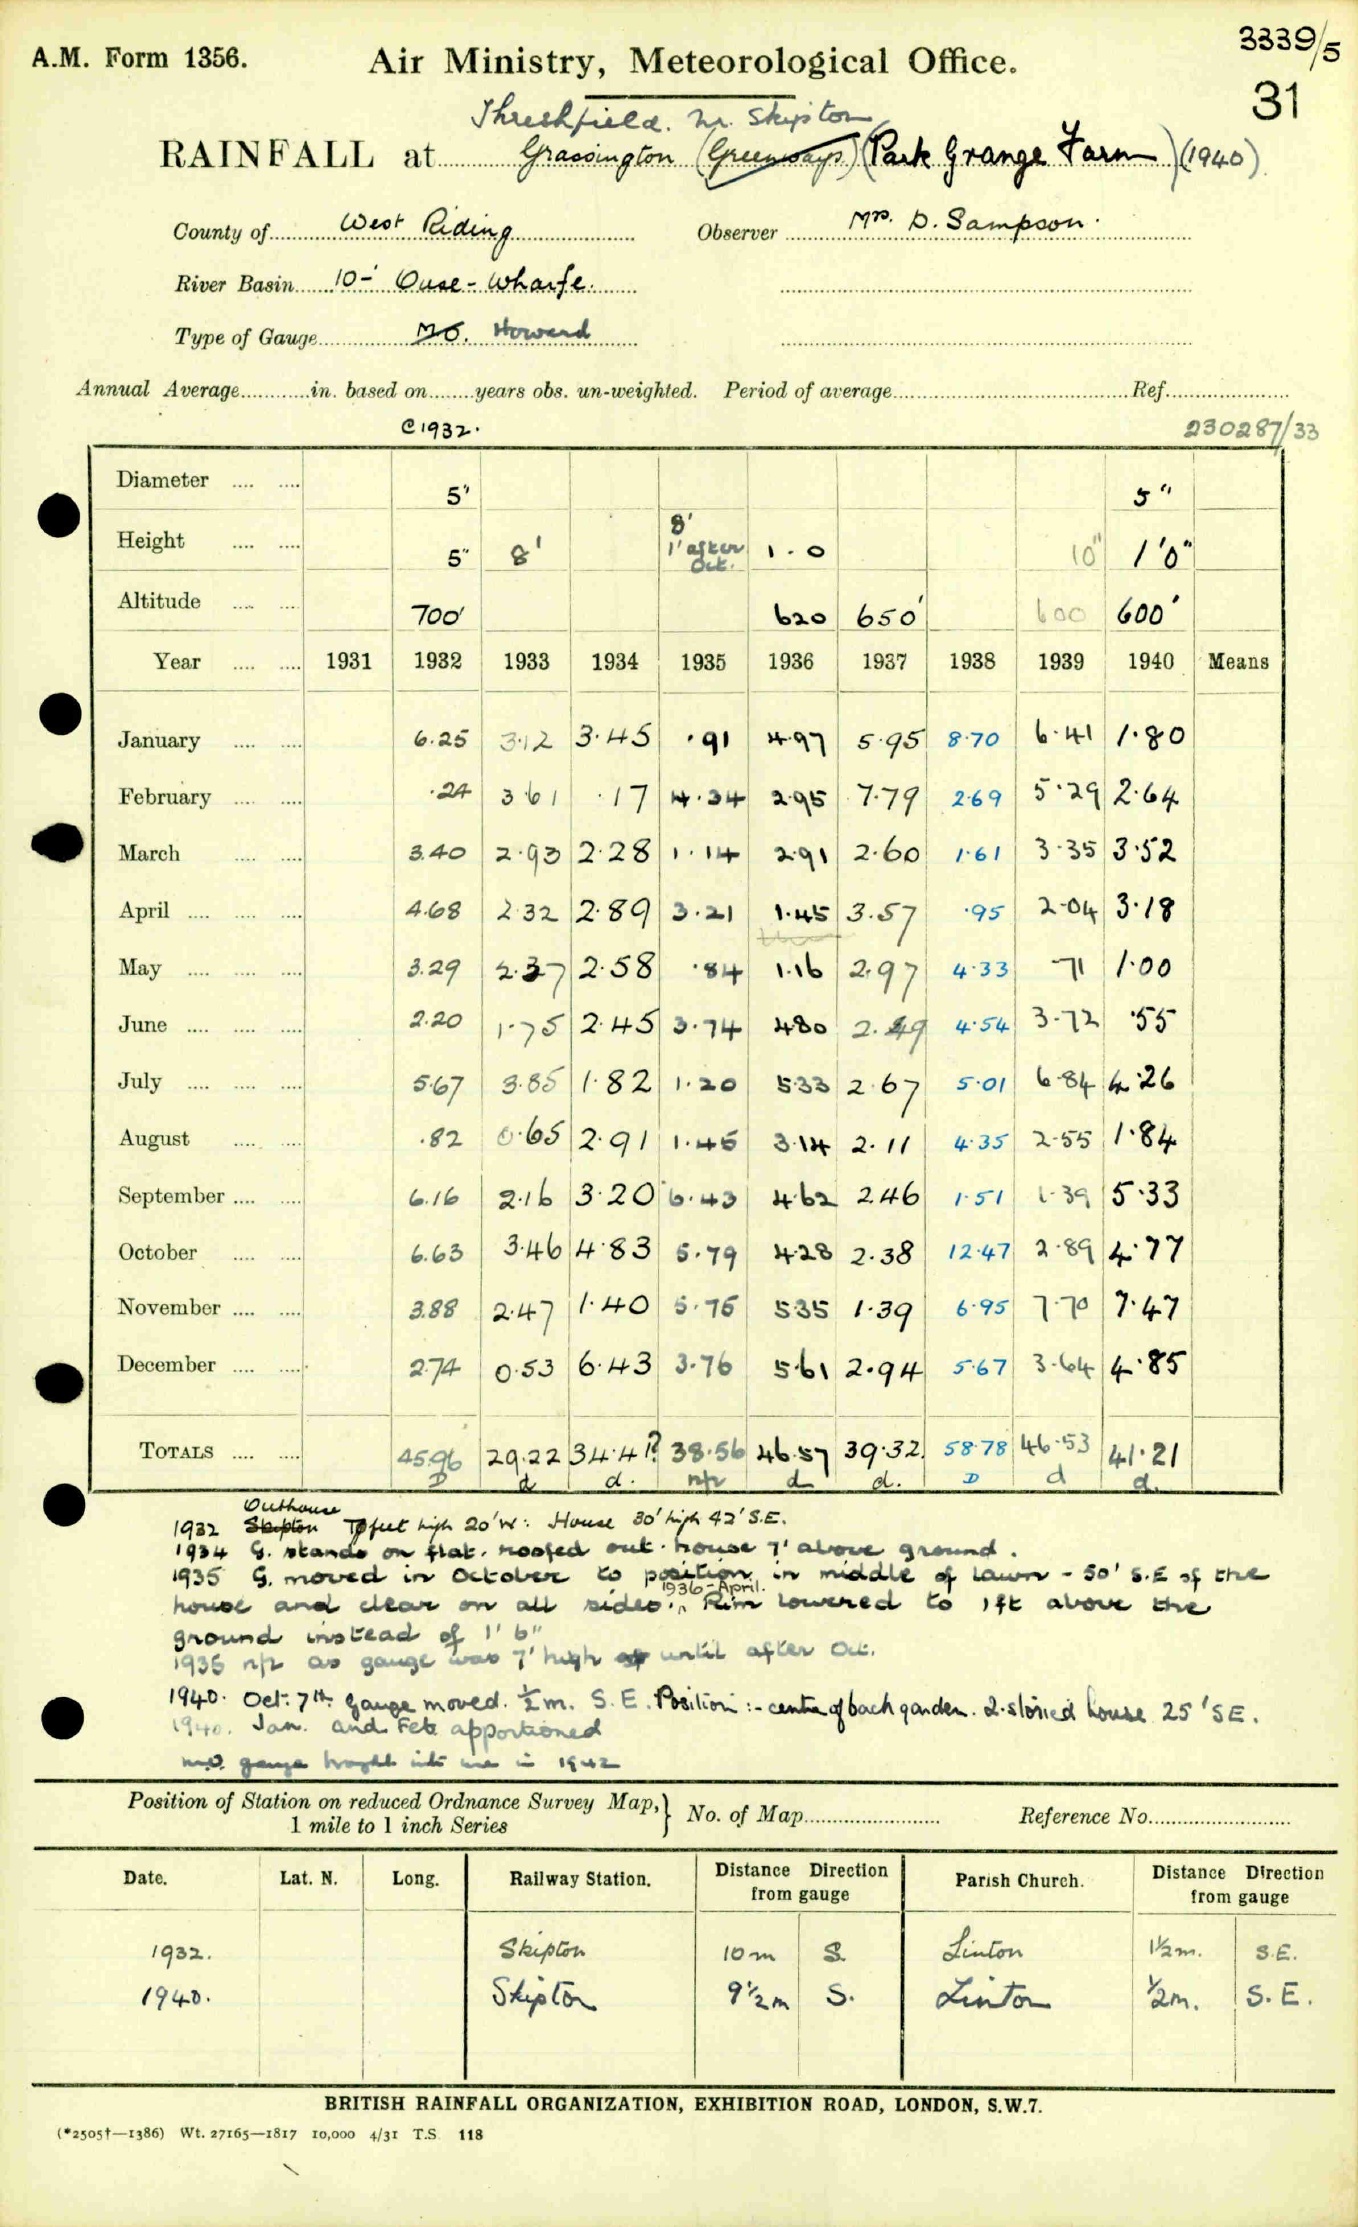 3339/5
A.M. Form 1356. Air Ministry, Meteorological Office.
31
Threshfield. Nr. Skipton
RAINFALL at Grassington (Greenways) (Park Grange Farm) (1940)
County of West Riding Observer Mrs. D. Sampson.
River Basin 10- Ouse - Wharfe.
Type of Gauge MO. Howard
Annual Average in. based on years obs. un-weighted. Period of average Ref.
C1932. 230287/33
Diameter 5" 5"
Height 5" 8' 8' 1' after Oct. 1.0 10" 1'0"
Altitude 700' 620 650' 600 600'
Year 1931 1932 1933 1934 1935 1936 1937 1938 1939 1940 Means
January 6.25 3.12 3.45 .91 4.97 5.95 8.70 6.41 1.80
February .24 3.61 .17 4.34 2.95 7.79 2.69 5.29 2.64
March 3.40 2.93 2.28 1.14 2.91 2.60 1.61 3.35 3.52
April 4.68 2.32 2.89 3.21 1.45 3.57 .95 2.04 3.18
May 3.29 2.37 2.58 .84 1.16 2.97 4.33 .71 1.00
June 2.20 1.75 2.45 3.74 4.80 2.49 4.54 3.72 .55
July 5.67 3.85 1.82 1.20 5.33 2.67 5.01 6.84 4.26
August .82 0.65 2.91 1.46 3.14 2.11 4.35 2.55 1.84
September 6.16 2.16 3.20 6.43 4.62 2.46 1.51 1.39 5.33
October 6.63 3.46 4.83 5.79 4.28 2.38 12.47 2.89 4.77
November 3.88 2.47 1.40 5.76 5.35 1.39 6.95 7.70 7.47
December 2.74 0.53 6.43 3.76 5.61 2.94 5.67 3.64 4.85
TOTALS 45.96 29.22 34.41? 38.56 46.57 39.32 58.78 46.53 41.21
D d d. n/r d d. D d d.
Outhouse
1932 Skipton 7 feet high 20' W: House 30' high 42' S.E.
1934 G. stands on flat. roofed out-house 7' above ground.
1935 G. moved in October to position in middle of lawn - 50' S.E of the
1936-April.
house and clear on all sides. Rim lowered to 1ft above the
ground instead of 1' 6"
1935 n/r as gauge was 7' high until after Oct.
1940. Oct. 7th. Gauge moved. ½m. S.E. Position:- centre of back garden. 2-storied house 25' SE.
1940. Jan. and Feb apportioned
M.O. gauge brought into use in 1942
Position of Station on reduced Ordnance Survey Map, 1 mile to 1 inch Series } No. of Map Reference No.
Date. Lat. N. Long. Railway Station. Distance Direction from gauge Parish Church. Distance Direction from gauge
1932. Skipton 10m S. Linton 1½m. S.E.
1940. Skipton 9½m S. Linton ½m. S.E.
BRITISH RAINFALL ORGANIZATION, EXHIBITION ROAD, LONDON, S.W.7.
(*2505†—1386) Wt. 27165—1817 10,000 4/31 T.S 118